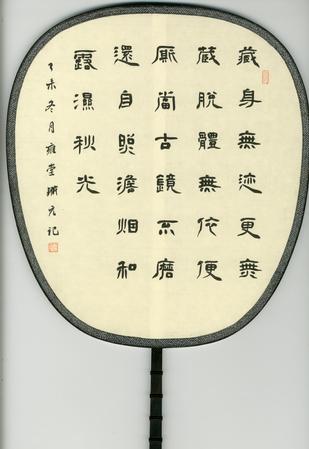 藏身無迹更無
蔵脫體無依便
厮當古鏡不磨
還自照澹烟和
露濕秋光
未冬月雍堂元記